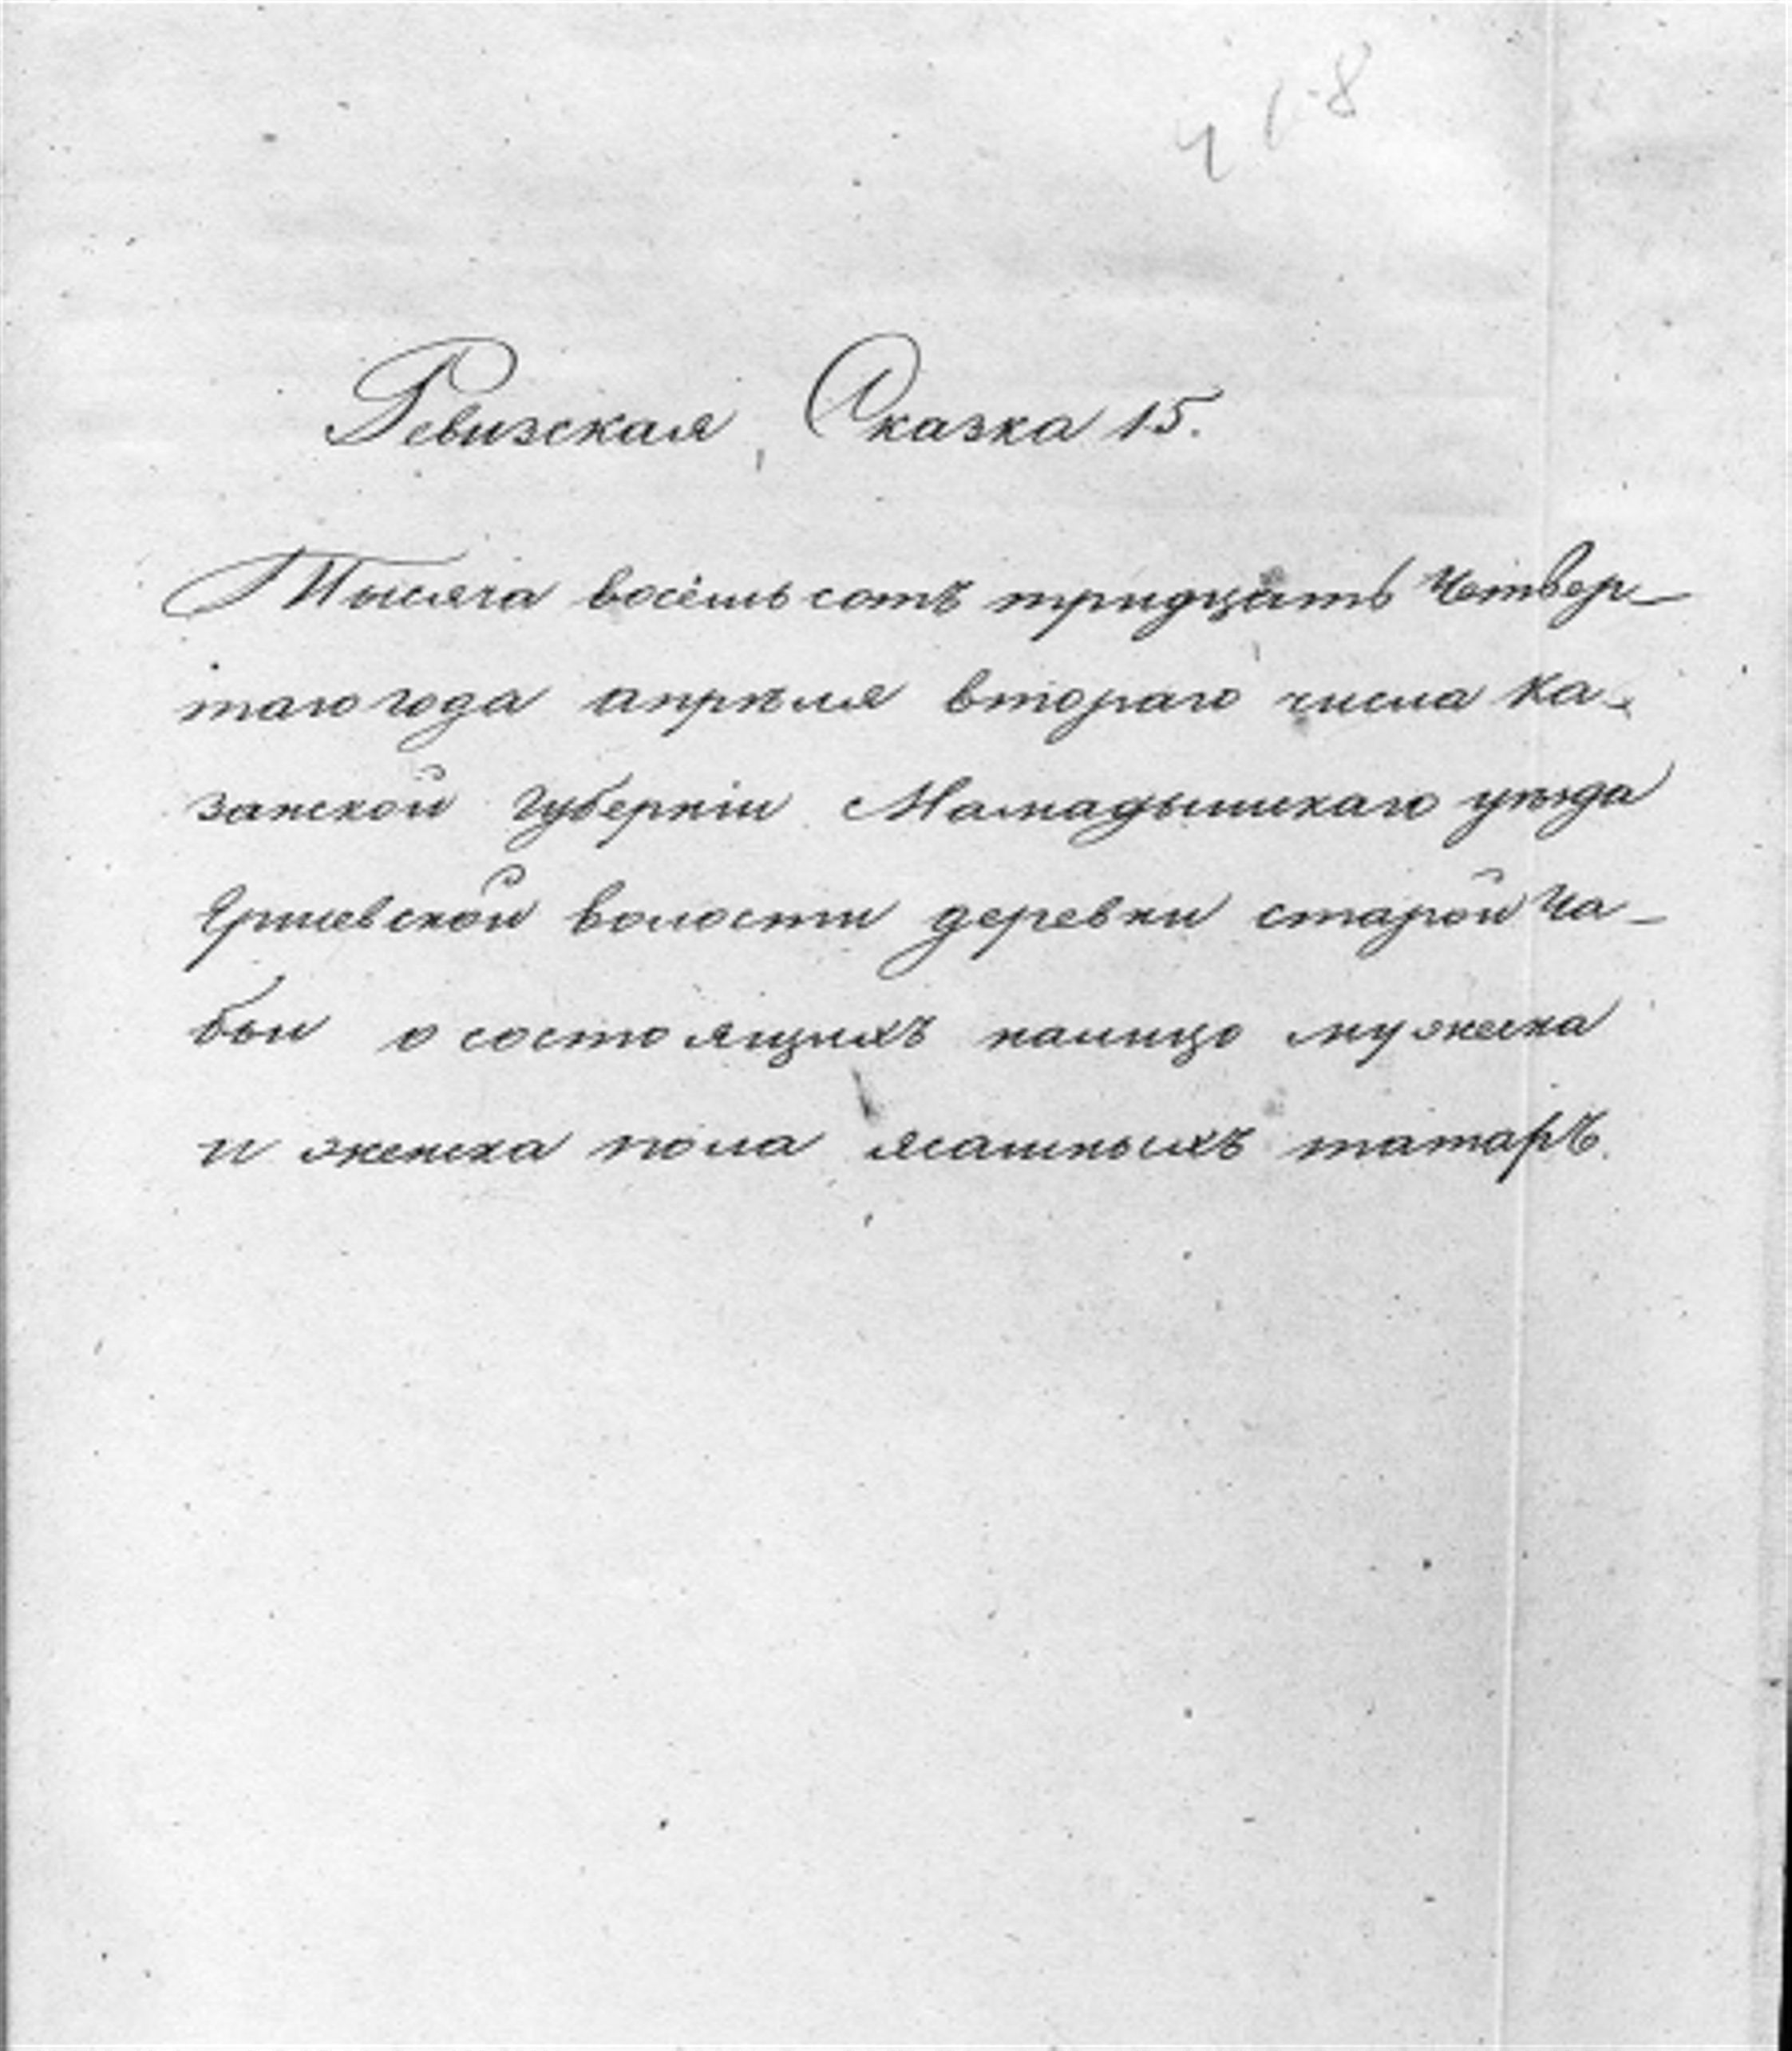 Ревизская Сказка 15.
Тысяча восемьсотъ тридцать Четвер-
таго года апрѣля втораго числа Ка-
занской Губерніи Мамадышскаго уѣзда
волости деревни старой Ча-
бьи о состоящихъ налицо мужеска
и женска пола ясашныхъ татаръ.